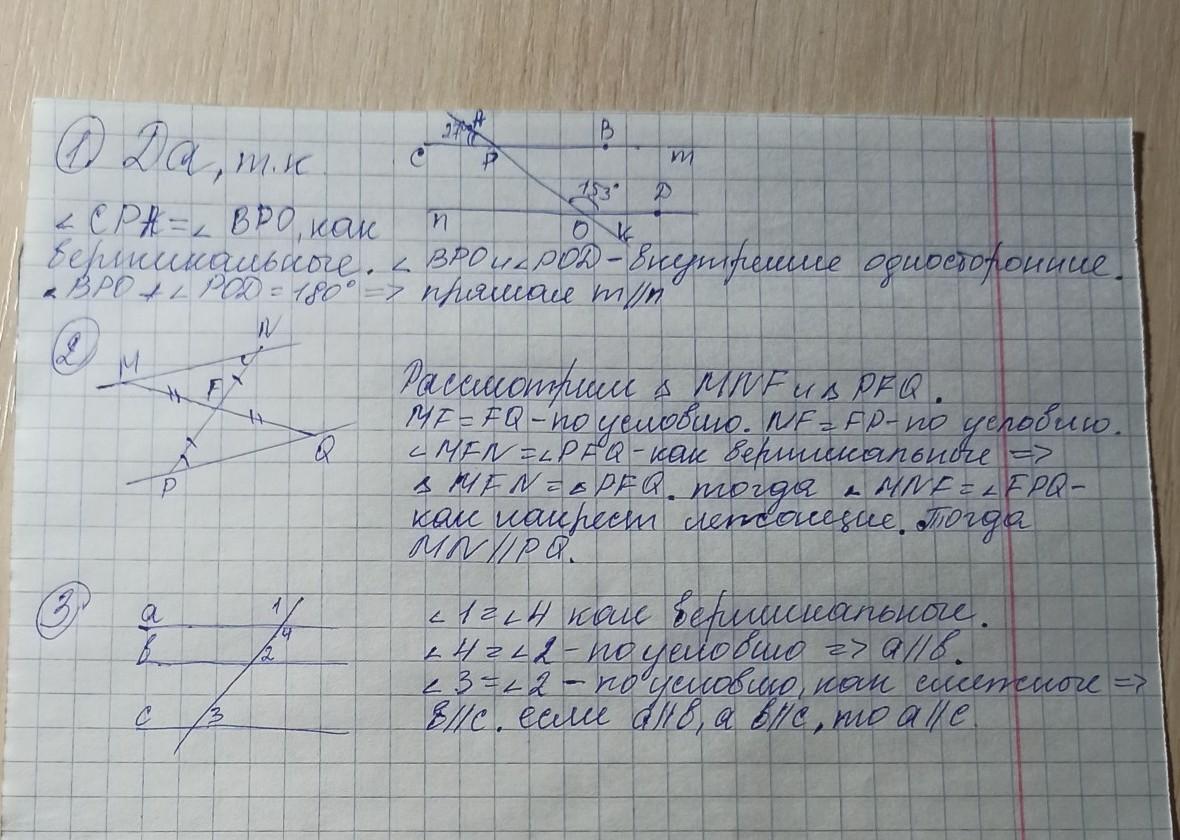 1) Да, т.к.
27° A
C P B m
153° D
n O K
∠ CPA = ∠ BPO, как
вертикальные. ∠ BPO и ∠ POD - внутренние односторонние.
∠ BPO + ∠ POD = 180° => прямая m//n
2)
N
M
F
Q
P
Рассмотрим ∆ MNF и ∆ PFQ.
MF = FQ - по условию. NF = FP - по условию.
∠ MFN = ∠ PFQ - как вертикальные =>
∆ MFN = ∆ PFQ. тогда ∠ MNF = ∠ FPQ -
как накрест лежащие. Тогда
MN // PQ.
3)
a 1
4
b 2
c 3
∠ 1 = ∠ 4 как вертикальные.
∠ 4 = ∠ 2 - по условию => a//b.
∠ 3 = ∠ 2 - по условию, как смежные =>
b//c. если a//b, а b//c, то a//c.